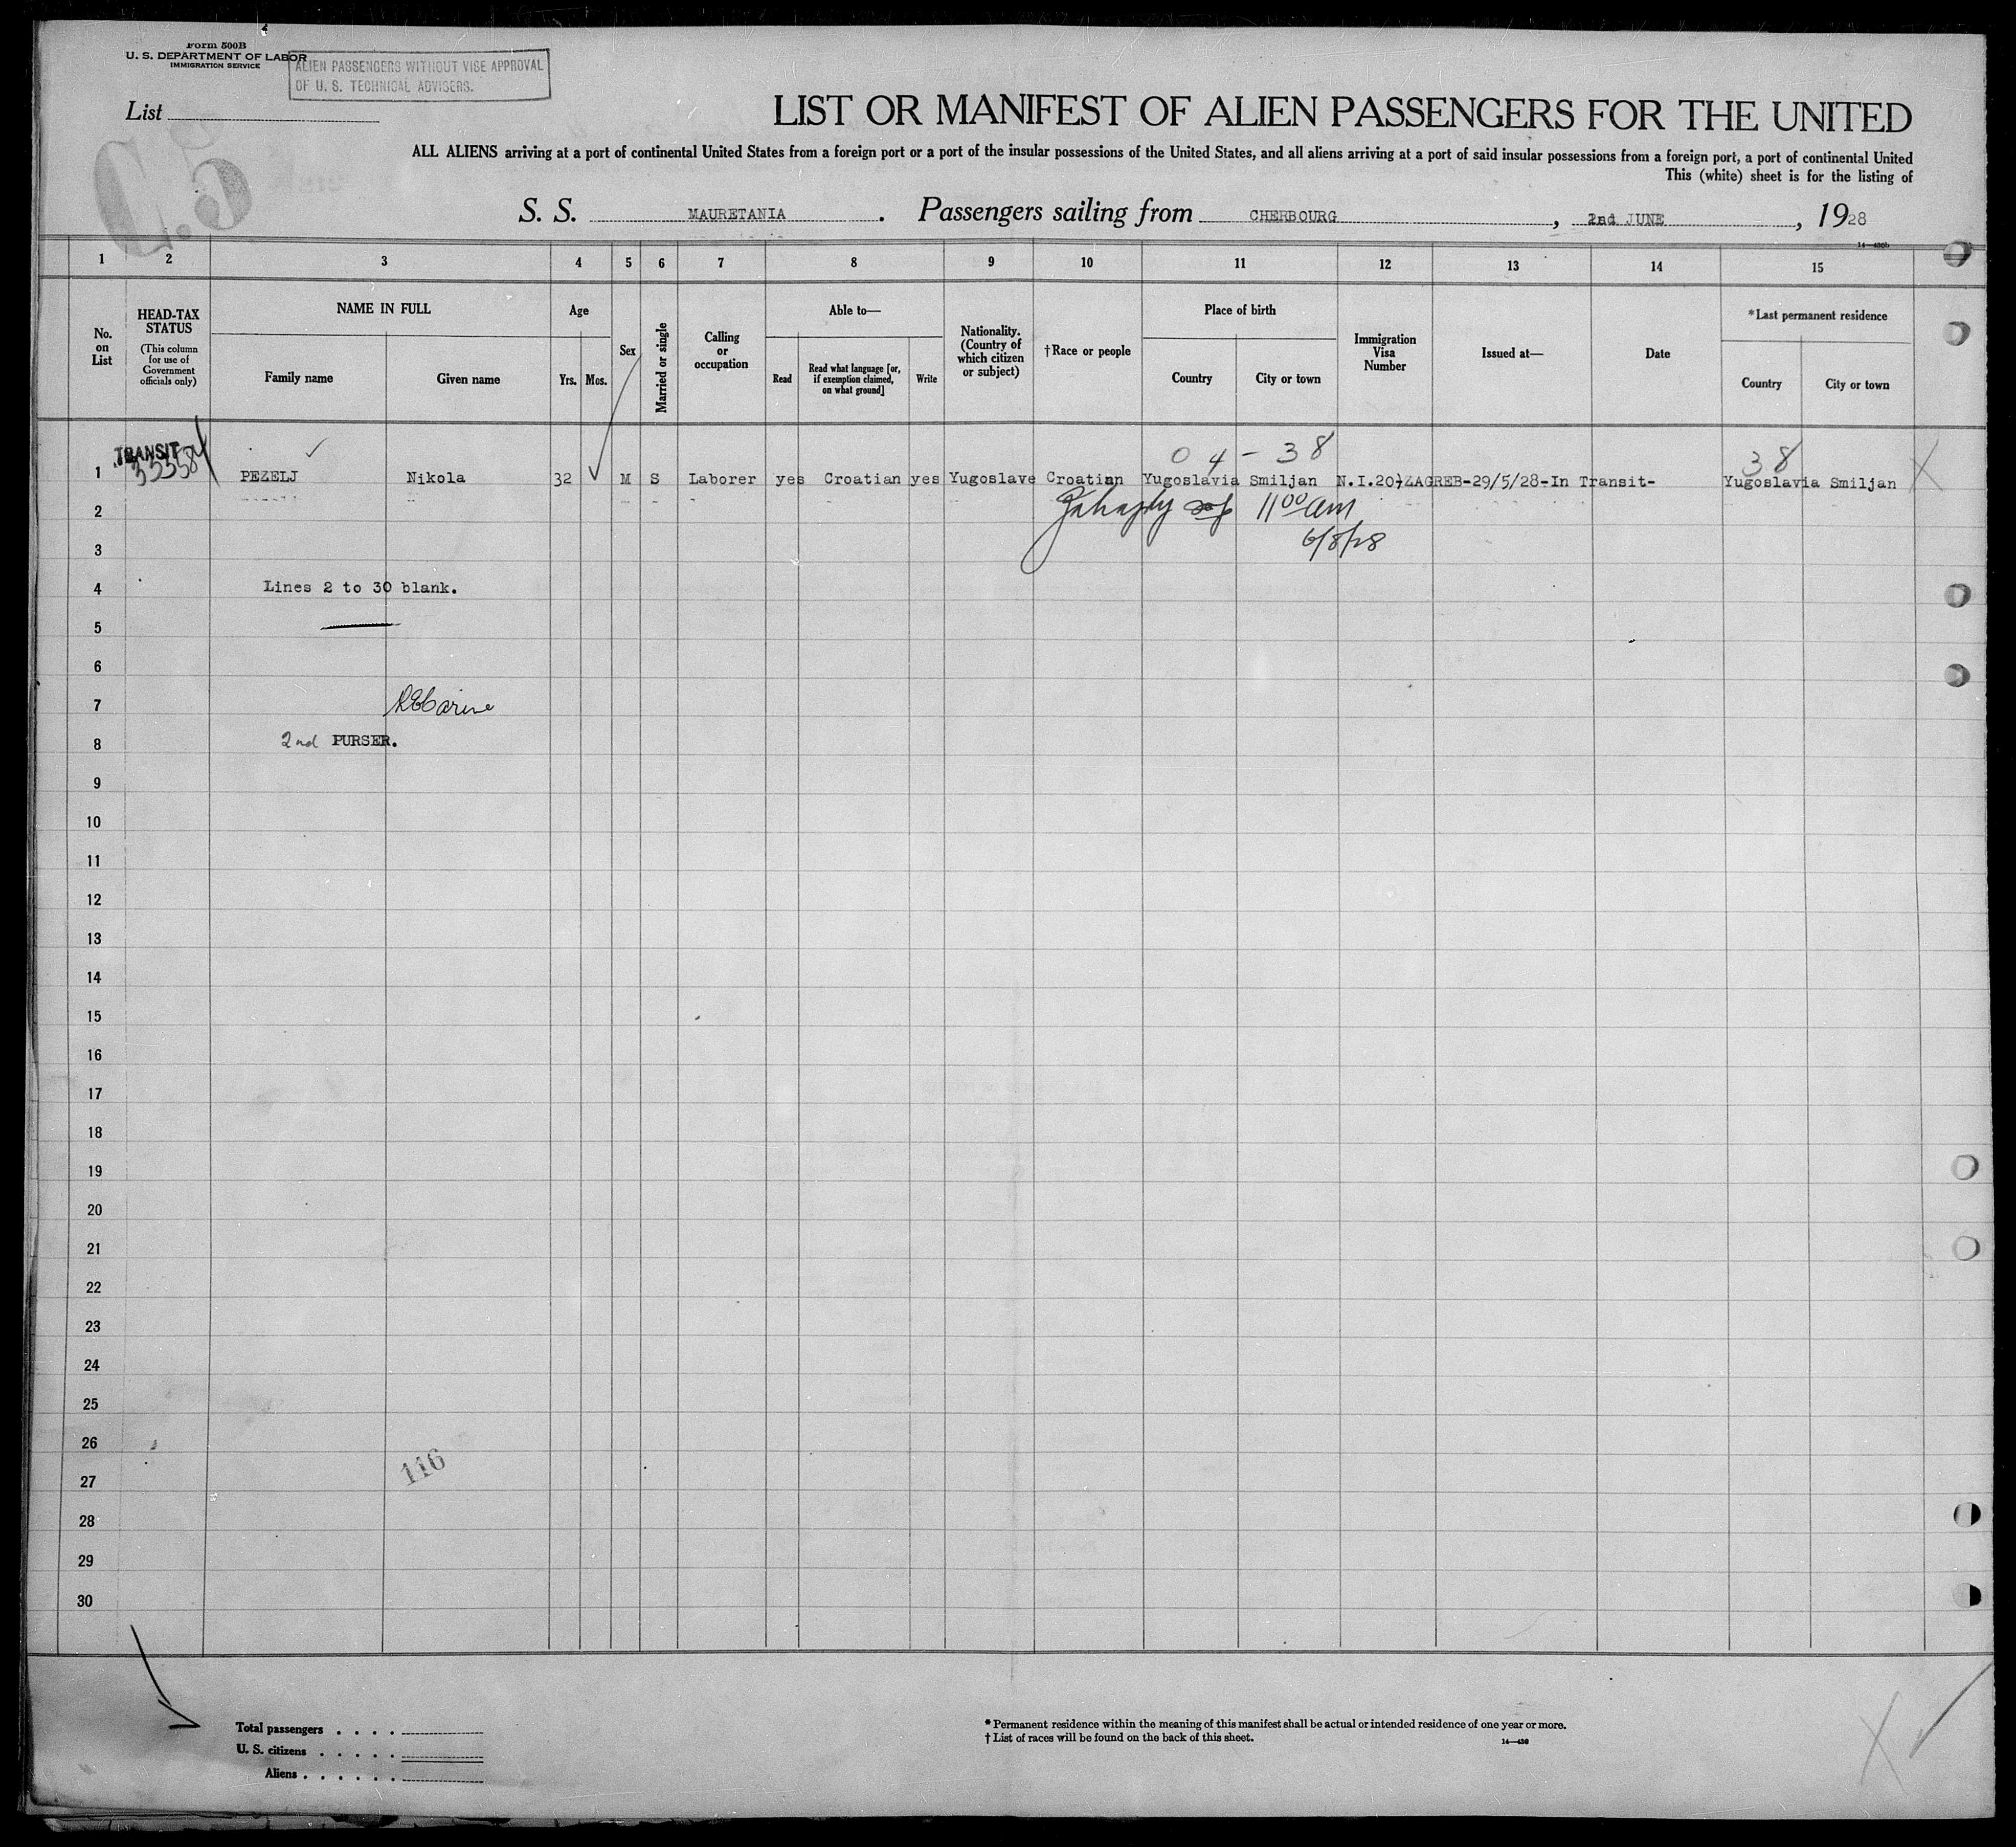 Form 500B
U. S. DEPARTMENT OF LABOR
IMMIGRATION SERVICE
ALIEN PASSENGERS WITHOUT VISE APPROVAL
OF U. S. TECHNICAL ADVISERS.
List
LIST OR MANIFEST OF ALIEN PASSENGERS FOR THE UNITED
ALL ALIENS arriving at a port of continental United States from a foreign port or a port of the insular possessions of the United States, and all aliens arriving at a port of said insular possessions from a foreign port, a port of continental United
This (white) sheet is for the listing of
S. S. MAURETANIA. Passengers sailing from CHERBOURG, 2nd JUNE, 1928
14—430b
1 2 3 4 5 6 7 8 9 10 11 12 13 14 15
No. on List
HEAD-TAX STATUS
(This column for use of Government officials only)
NAME IN FULL
Family name Given name
Age
Yrs. Mos.
Sex
Married or single
Calling or occupation
Able to—
Read
Read what language [or, if exemption claimed, on what ground]
Write
Nationality. (Country of which citizen or subject)
†Race or people
Place of birth
Country City or town
Immigration Visa Number
Issued at—
Date
*Last permanent residence
Country City or town
TRANSIT
04-38 38
1 PEZELJ Nikola 32 M S Laborer yes Croatian yes Yugoslave Croatian Yugoslavia Smiljan N.I.207ZAGREB-29/5/28-In Transit- Yugoslavia Smiljan X
2 11 00 am
3 6/8/28
4 Lines 2 to 30 blank.
5
6
7
8 2nd PURSER.
9
10
11
12
13
14
15
16
17
18
19
20
21
22
23
24
25
26
116
27
28
29
30
Total passengers . . . .
U. S. citizens . . . . .
Aliens . . . . . .
* Permanent residence within the meaning of this manifest shall be actual or intended residence of one year or more.
† List of races will be found on the back of this sheet.
14—430
X